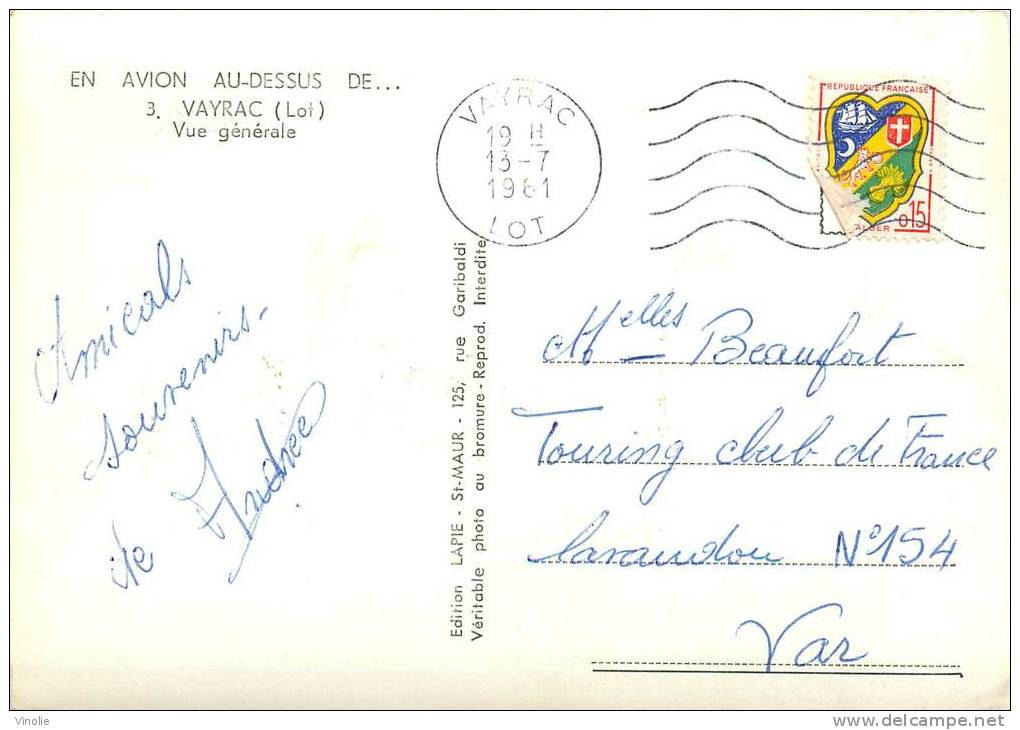 EN AVION AU-DESSUS DE...
3. VAYRAC (Lot)
Vue générale
VAYRAC
19 H
13-7
1961
LOT
REPUBLIQUE FRANÇAISE
ALGER
0,15
Amicals
souvenirs.
de Andrée
Edition LAPIE - St-MAUR - 125, rue Garibaldi
Véritable photo au bromure - Reprod. Interdite
Melles Beaufort
Touring club de France
Lavandou N°154
Var
Vinolie
http://www.delcampe.net